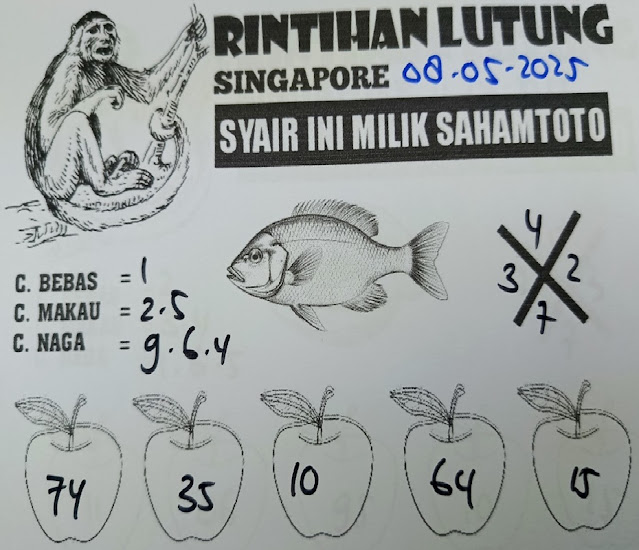 RINTIHAN LUTUNG
SINGAPORE 08-05-2025
SYAIR INI MILIK SAHAMTOTO
4
3 2
7
C. BEBAS = 1
C. MAKAU = 2.5
C. NAGA = 9.6.4
74 35 10 64 15